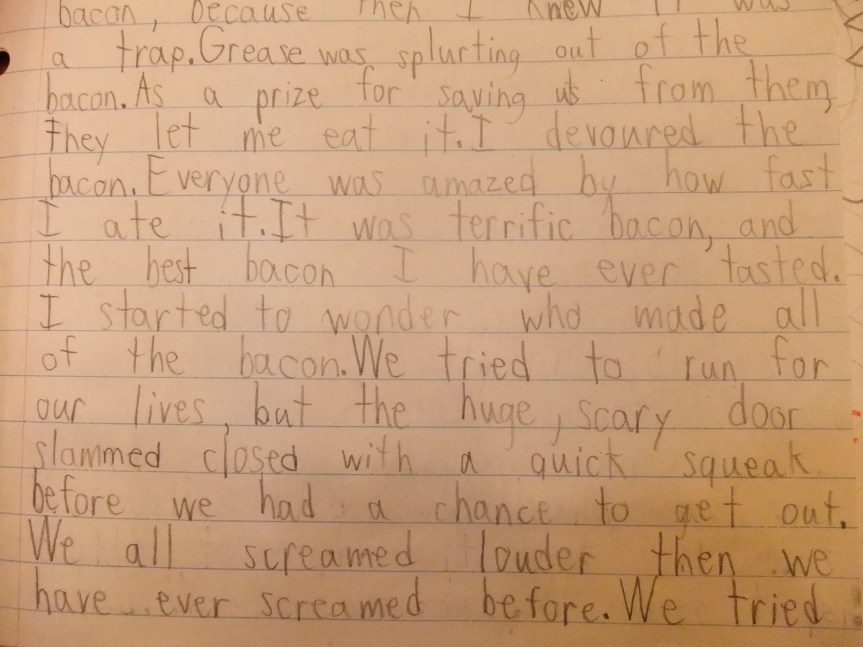 bacon, because then I knew it was
a trap.Grease was splurting out of the
bacon.As a prize for saving us from them,
they let me eat it.I devoured the
bacon.Everyone was amazed by how fast
I ate it.It was terrific bacon, and
the best bacon I have ever tasted.
I started to wonder who made all
of the bacon.We tried to run for
our lives, but the huge, scary door
slammed closed with a quick squeak
before we had a chance to get out.
We all screamed louder then we
have ever screamed before.We tried